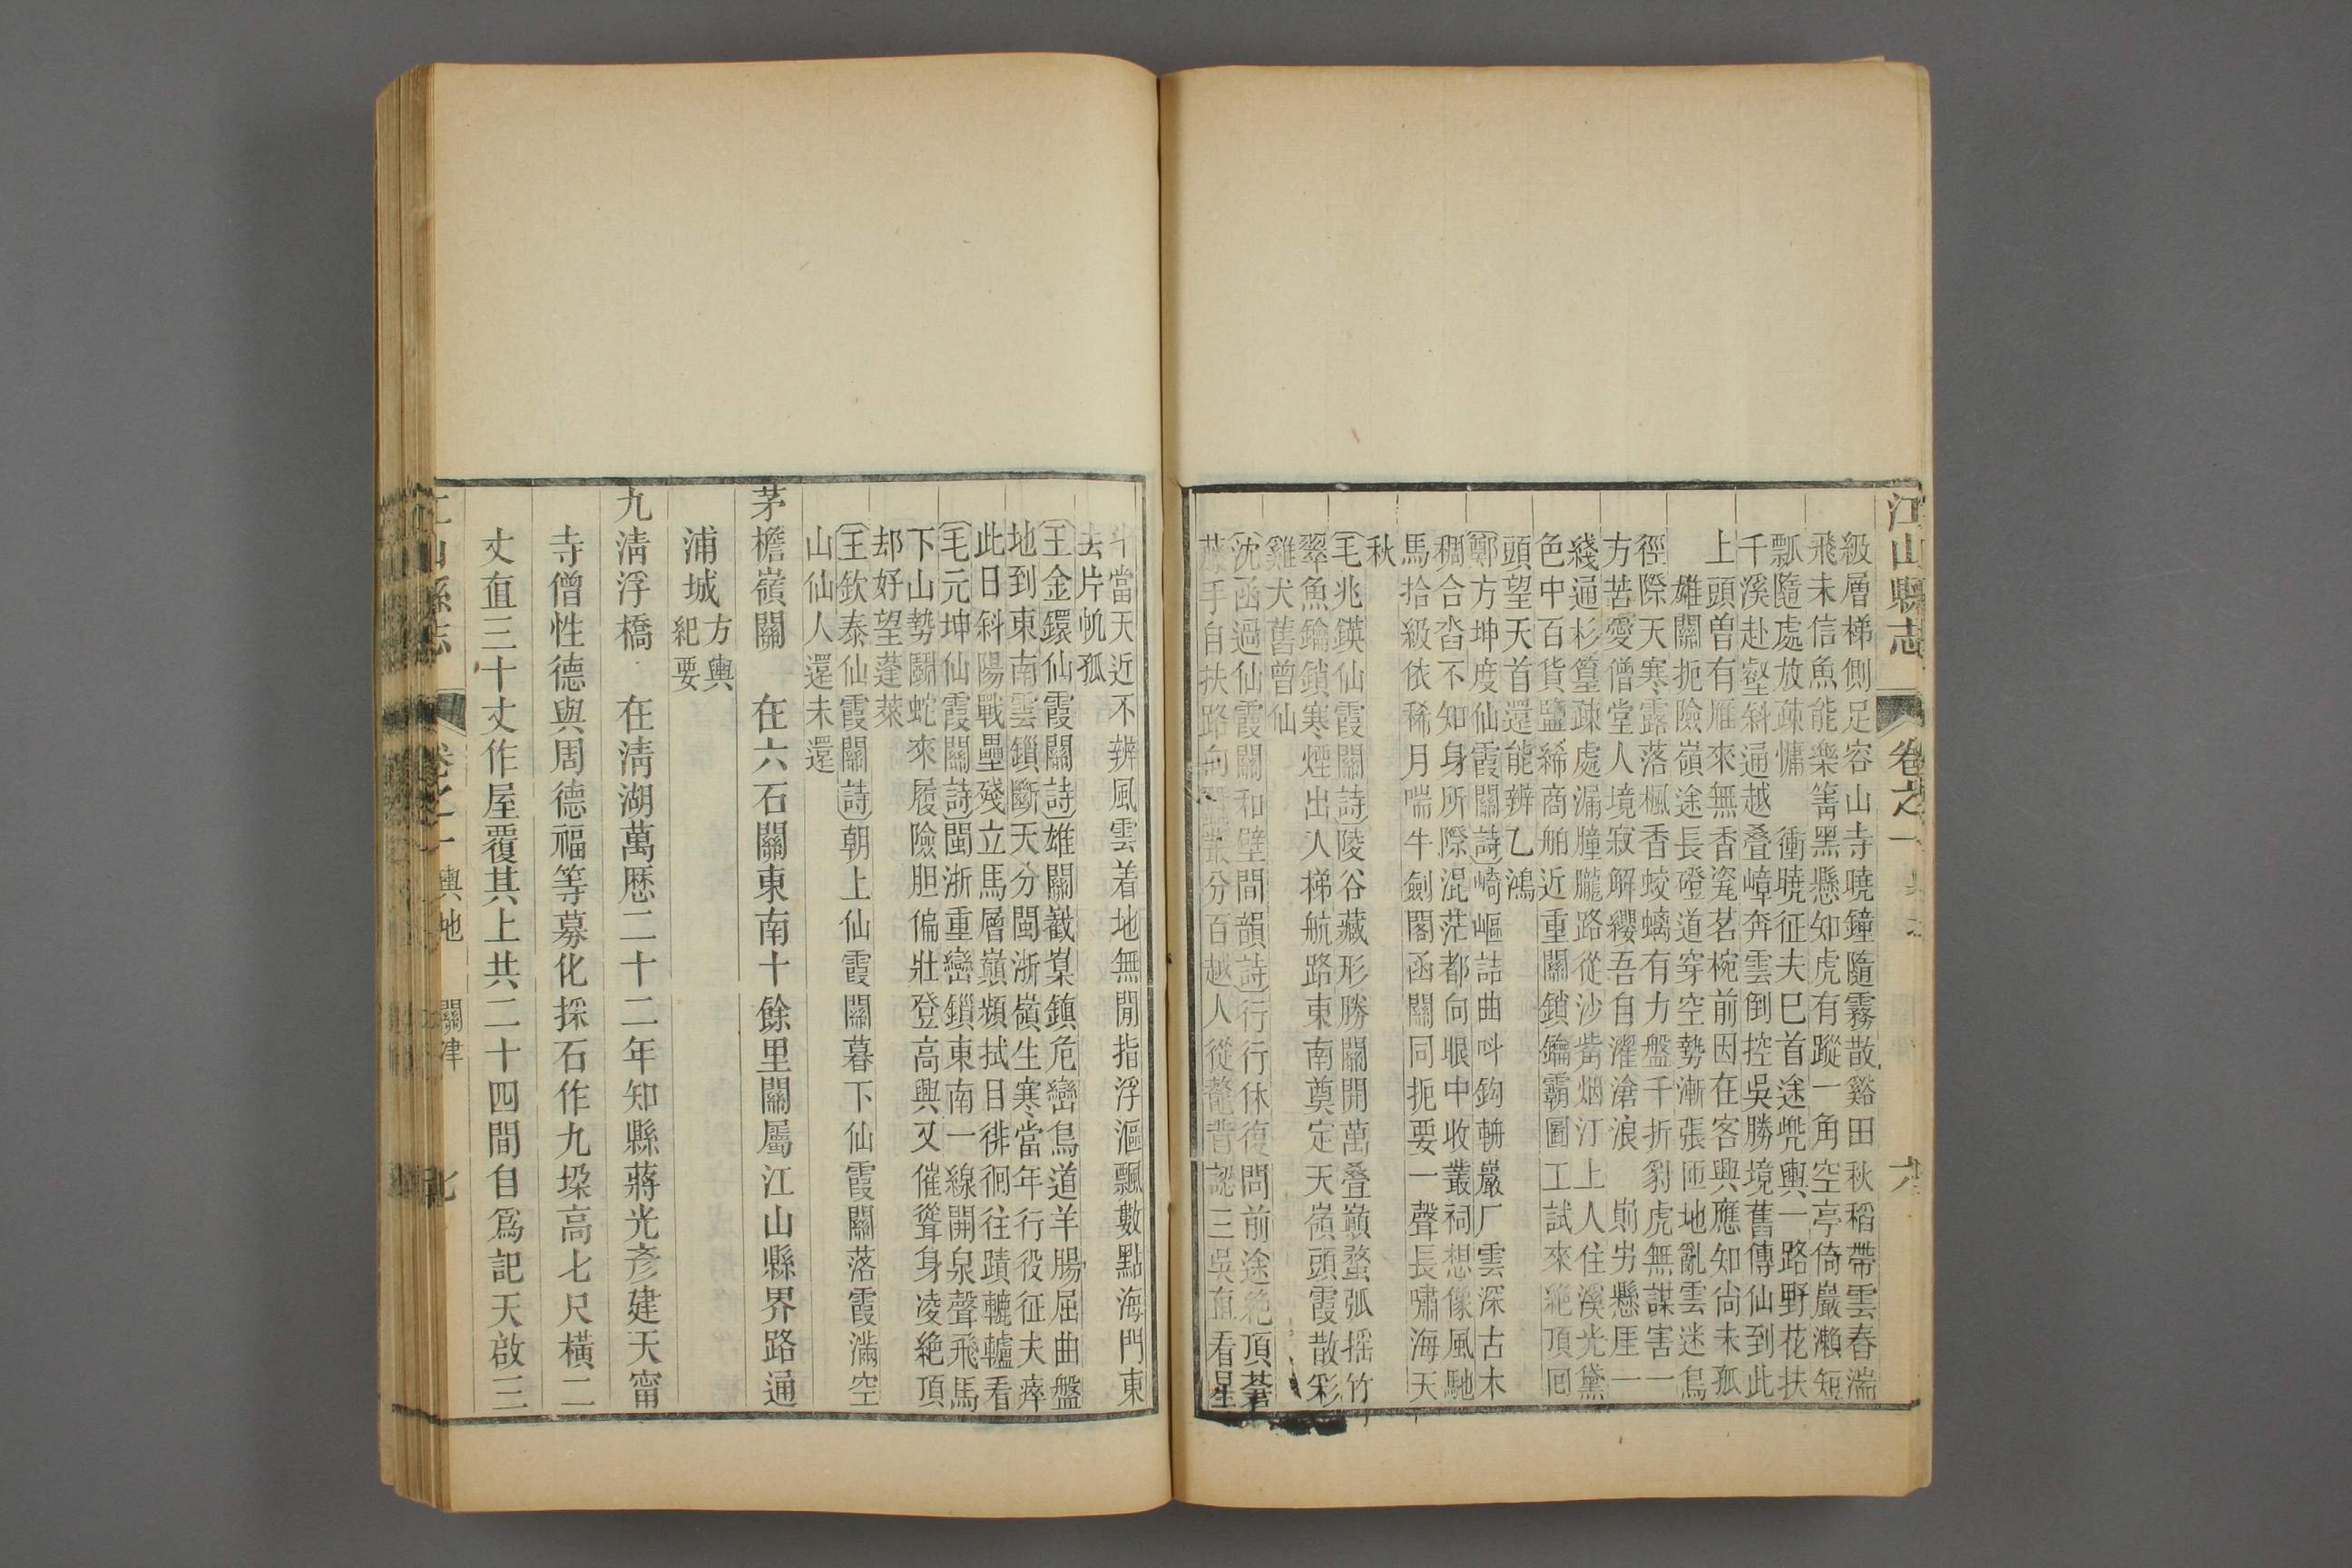 江山縣志
卷之一
級層梯側足容山寺曉鐘隨霧散谿田秋稻帶雲舂湍
飛未信魚能樂箐黑懸知虎有蹤一角空亭倚巖瀨短
瓢隨處放疎慵　衝曉征夫巳首途兜輿一路野花扶
千溪赴壑斜通越叠嶂奔雲倒控吳勝境舊傳仙到此
上頭曾有雁來無香瓷茗椀前因在客興應知尙未孤
雄關扼險嶺途長磴道穿空勢漸張匝地亂雲迷鳥
徑際天寒露落楓香蛟螭有力盤千折豺虎無謀害一
方苦愛僧堂人境寂解纓吾自濯滄浪　崱屴懸厓一
綫通杉篁疎處漏朣朧路從沙觜烟汀上人住溪光黛
色中百貨鹽絺商舶近重關鎖鑰霸圖工試來絕頂回
頭望天首還能辨乙鴻
鄭方坤度仙霞關詩崎嶇詰曲呌鈎輈巖厂雲深古木
稠合沓不知身所際混茫都向眼中收叢祠想像風馳
馬拾級依稀月喘牛劍閣函關同扼要一聲長嘯海天
秋
毛兆鍈仙霞關詩陵谷藏形勝關開萬叠巓蝥弧摇竹
翠魚鑰鎖寒煙出入梯航路東南奠定天嶺頭霞散彩
雞犬舊曾仙
沈函過仙霞關和壁間韻詩行行休復問前途絕頂莓
手自扶路向分百越人從鼇背認三吳直看星
斗當天近不辨風雲着地無閒指浮漚飄數點海門東
去片帆孤
王金鐶仙霞關詩雄關觀鎮危巒鳥道羊腸屈曲盤
地到東南雲鎖斷天分閩浙嶺生寒當年行役征夫瘁
此日斜陽戰壘殘立馬層巓頻拭日徘徊往蹟轆轤看
毛元坤仙霞關詩閩浙重巒鎖東南一線開泉聲飛馬
下山勢鬭蛇來履險胆偏壯登高興又催聳身凌絕頂
却好望蓬萊
王欽泰仙霞關詩朝上仙霞關暮下仙霞關落霞滿空
山仙人還未還
茅檐嶺關　在六石關東南十餘里關屬江山縣界路通
浦城方輿紀要
九淸浮橋　在淸湖萬歷二十二年知縣蔣光彥建天甯
寺僧性德與周德福等募化採石作九垜高七尺橫二
丈直三十丈作屋覆其上共二十四間自爲記天啟三
山縣志
卷之一
輿地
關津